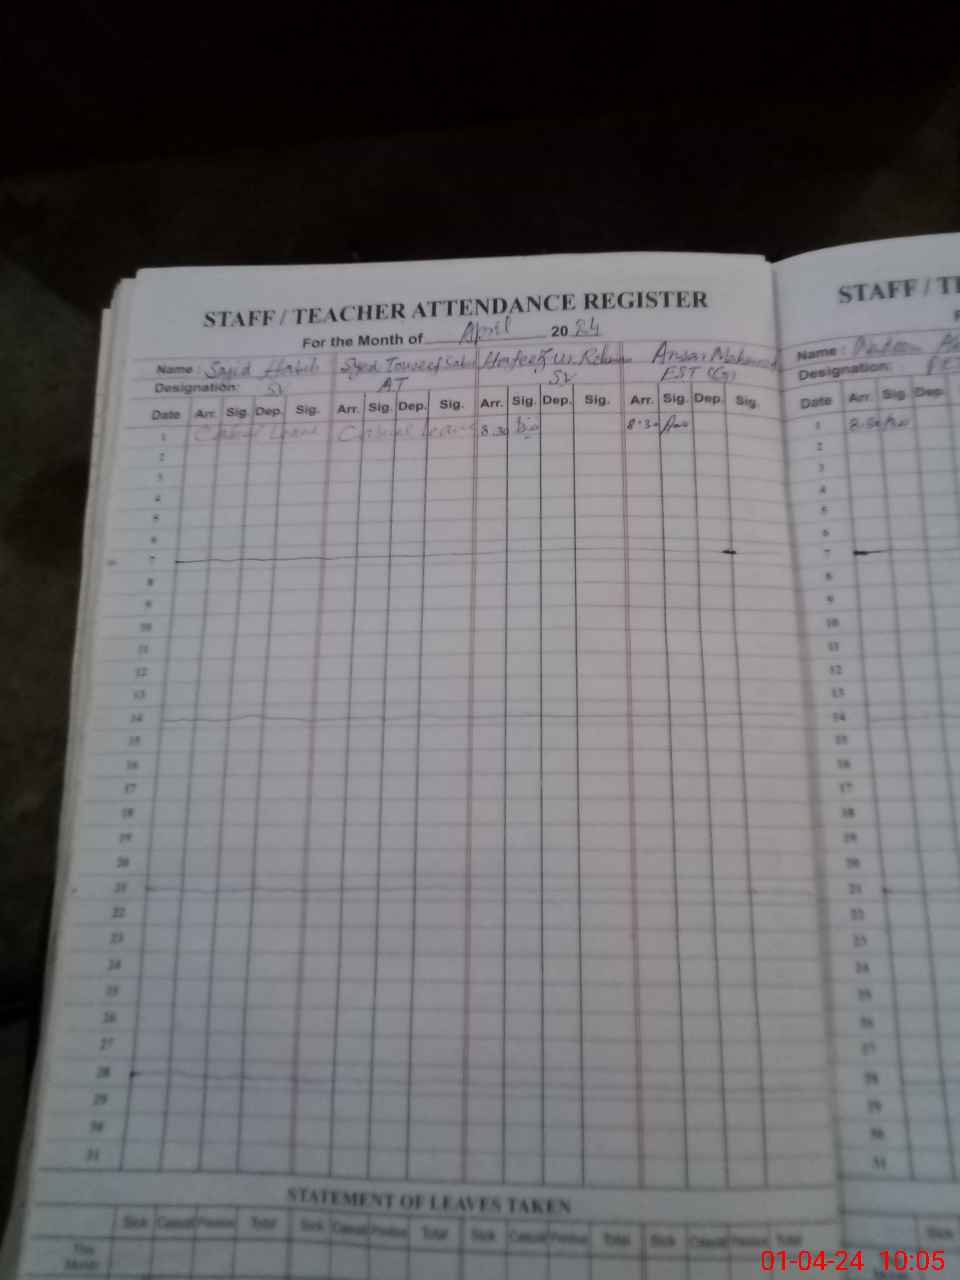 STAFF / TEACHER ATTENDANCE REGISTER
For the Month of April 2024
Name: Sajid Habib Syed Touseef Hafeez ur Rehman Ansar Mahmood
Designation: AT SV EST (G)
Date Arr. Sig. Dep. Sig. Arr. Sig. Dep. Sig. Arr. Sig. Dep. Sig. Arr. Sig. Dep. Sig.
1 Casual Leave Casual Leave 8.30 8.30
2
3
4
5
6
7
8
9
10
11
12
13
14
15
16
17
18
19
20
21
22
23
24
25
26
27
28
29
30
31
STATEMENT OF LEAVES TAKEN
Sick Casual Total Sick Casual Total Sick Casual Total Sick Casual Total
This Month
STAFF / TE
Name:
Designation:
Date Arr. Sig. Dep.
1
2
3
4
5
6
7
8
9
10
11
12
13
14
15
16
17
18
19
20
21
22
23
24
25
26
27
28
29
30
31
Sick
01-04-24 10:05